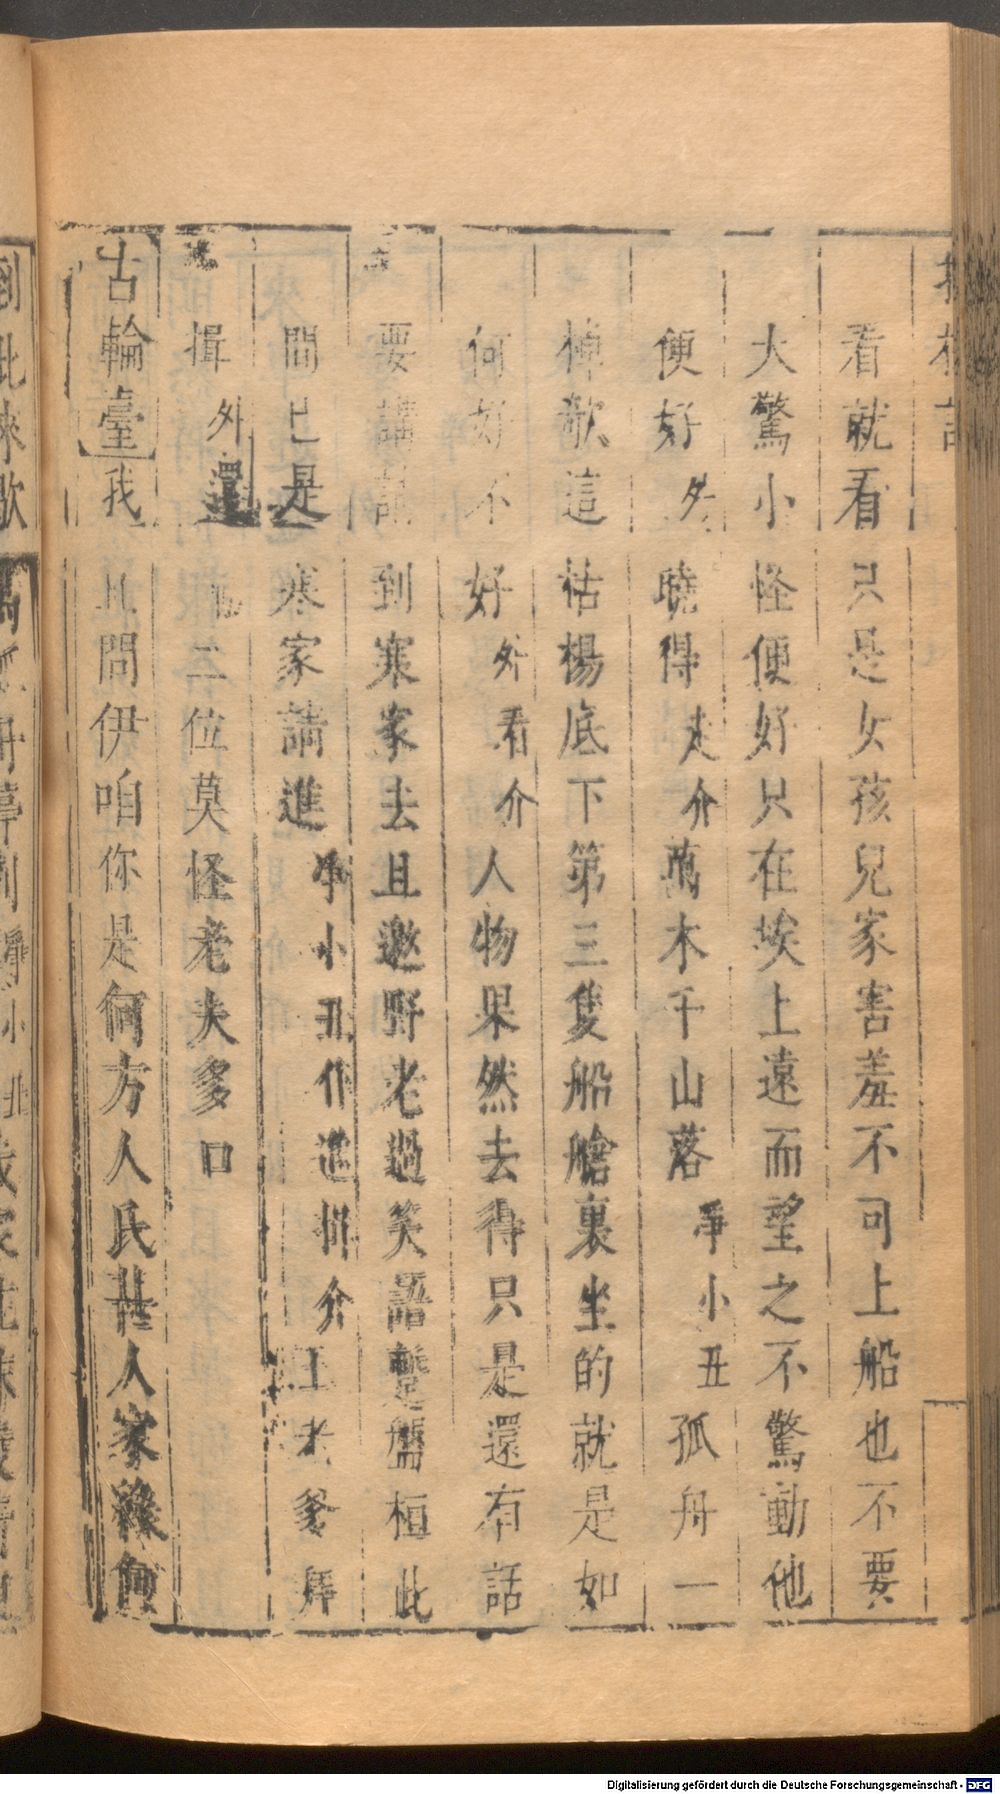 看就看只是女孩兒家害羞不可上船也不要
大驚小怪便好只在埃上遠而望之不驚動他
便好外曉得走介萬木千山落淨小丑孤舟一
棹歌這枯楊底下第三隻船艙裏坐的就是如
何好不好外看介人物果然去得只是還有話
要講請到寒家去且邀野老過笑語蹔盤桓此
間已是寒家請進淨小丑作進揖介王老爹拜
揖外還二位莫怪老夫多口
古輪臺我且問伊咱你是何方人氏甚人家緣何
Digitalisierung gefördert durch die Deutsche Forschungsgemeinschaft - DFG